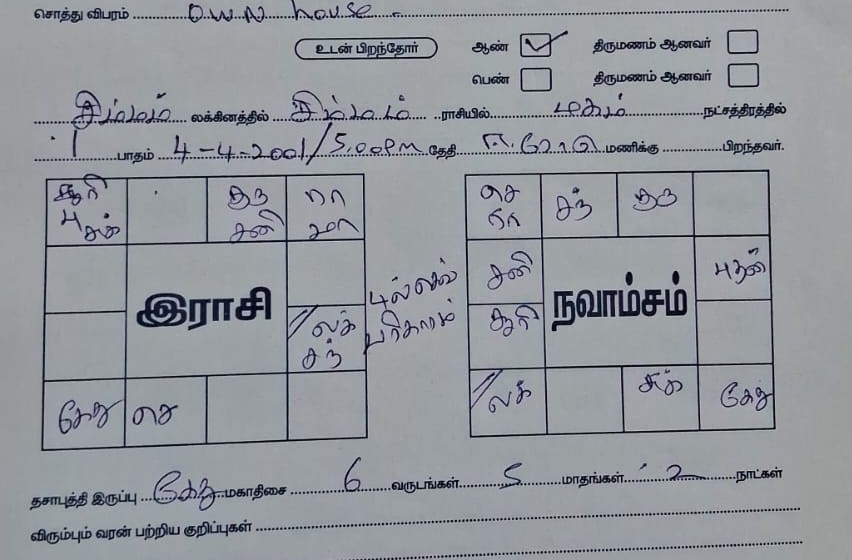 சொத்து விபரம் own house.
உடன் பிறந்தோர் ஆண் ✓ திருமணம் ஆனவர்
பெண் திருமணம் ஆனவர்
சிம்மம் லக்கினத்தில் சிம்மம் ராசியில் மகம் நட்சத்திரத்தில்
1 பாதம் 4-4-2001/5.00PM தேதி மணிக்கு பிறந்தவர்.
சூரி புத சுக் குரு சனி ரா மா
இராசி
லக் சந்
கேது செ
பரிகாரம்
செ ரா சந் குரு
சனி புதன்
சூரி
நவாம்சம்
லக் சுக் கேது
தசாபுத்தி இருப்பு கேது மகாதிசை 6 வருடங்கள் 5 மாதங்கள் 2 நாட்கள்
விரும்பும் வரன் பற்றிய குறிப்புகள்